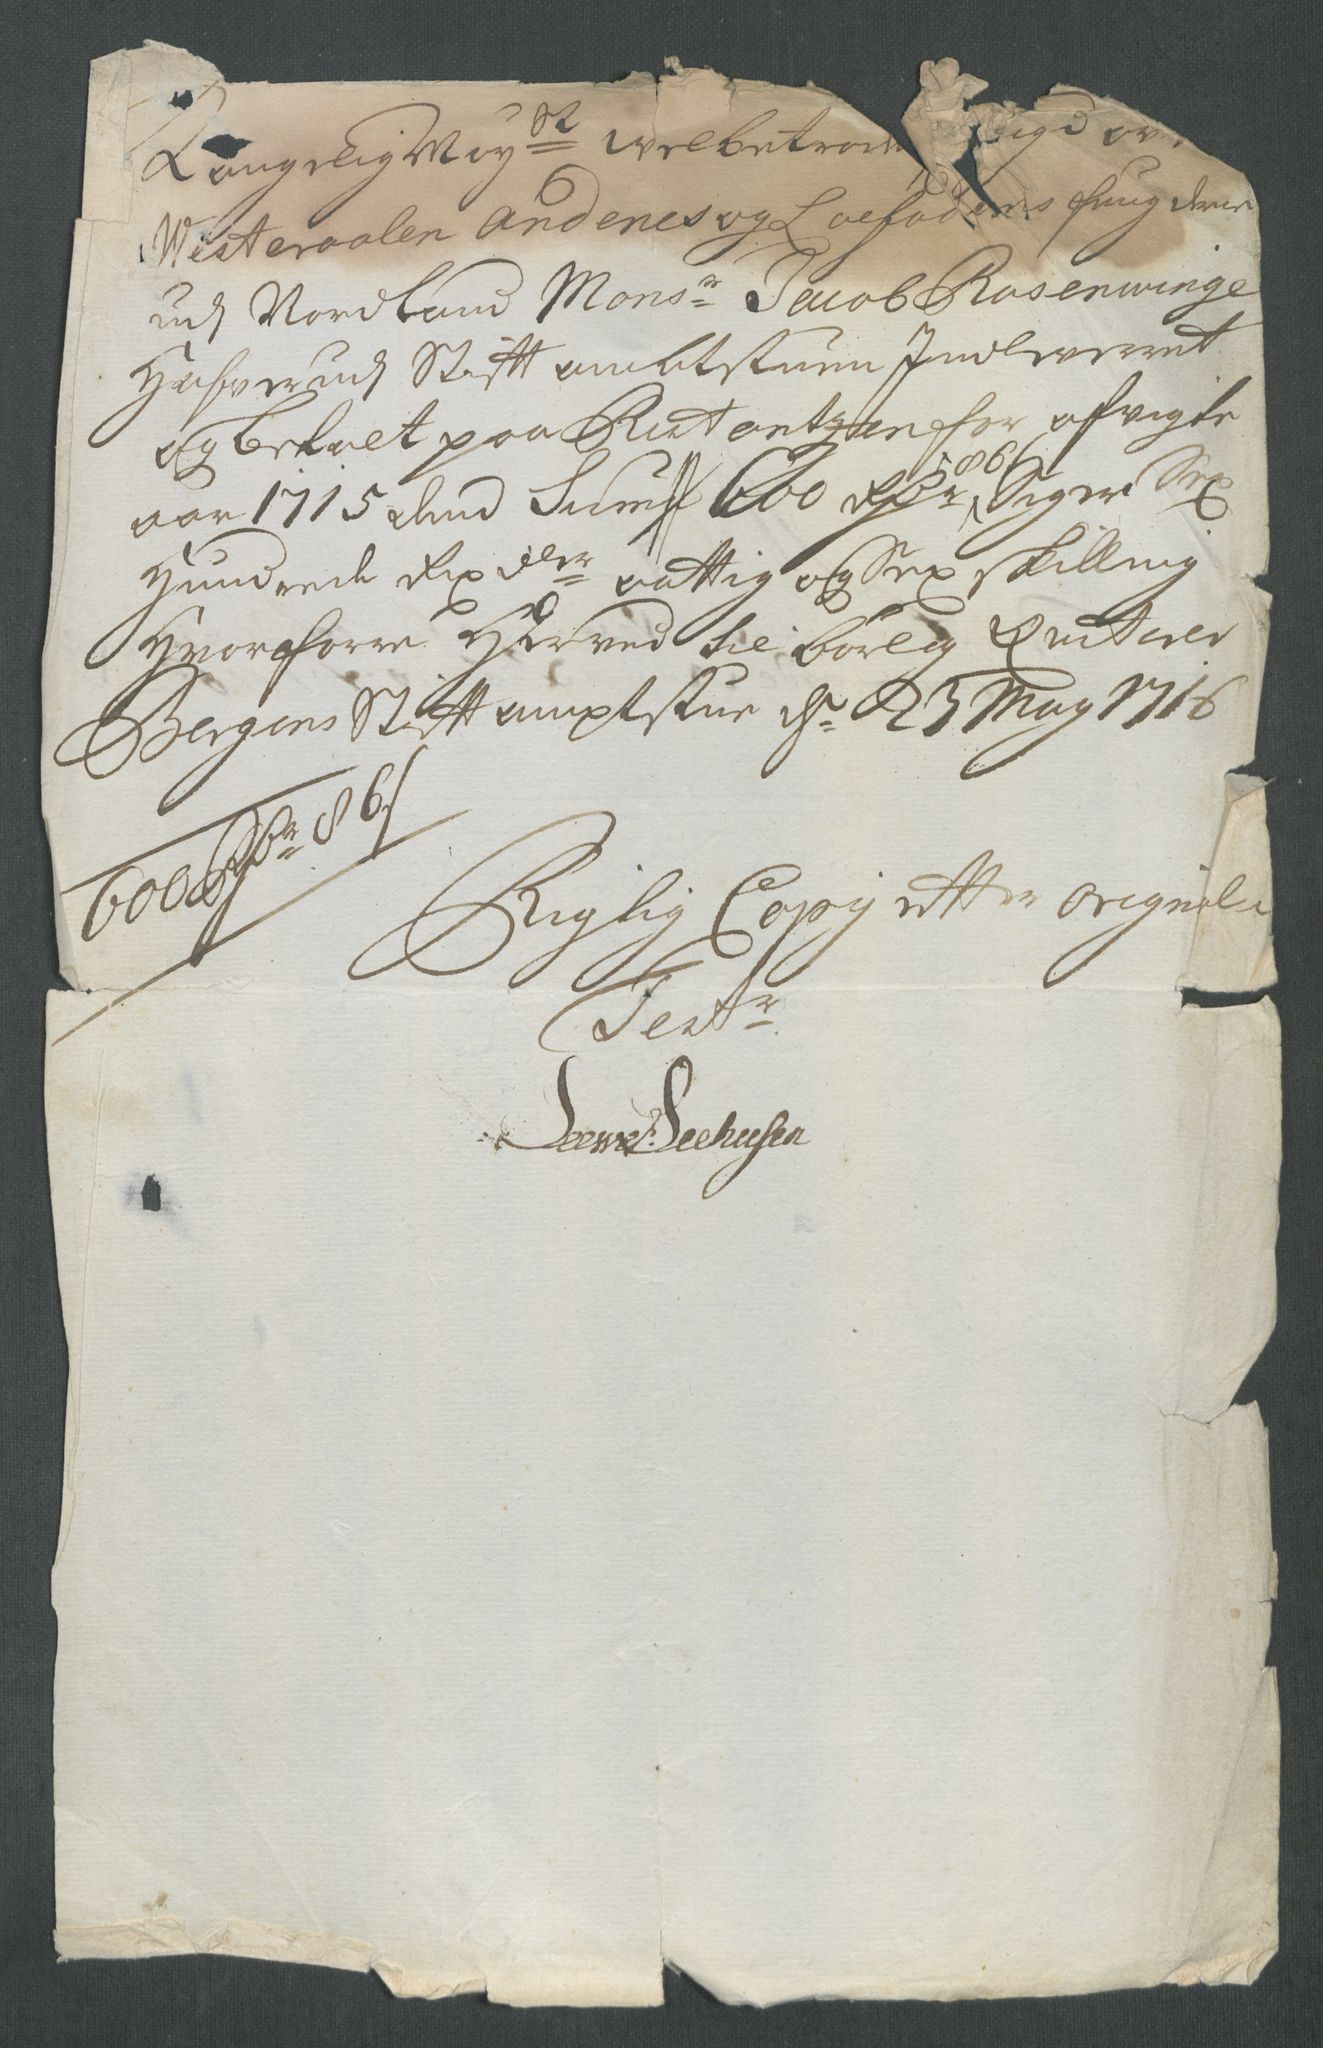 Kongelig May st welbetroede Fogd ov
Westeraalen Andenes og Loefodens fougderie
udj Nordland Mons r Jacob Rosenwinge
Hafver udj Stift ambtstuen Indleverret
og betalt paa Restantzen for afvigte
aar 1715 dend Summa 600 Rdr 86 s Siger Sex
Hundrede Rix dlr aattig og Sex skilling
Hvorforre Hermed tilbørlig Qviterer
Bergens Stift amptstue d. 23 May 1716
600 Rdr 86 s
Rigtig Copij efter originalen
Test r
Seehusen